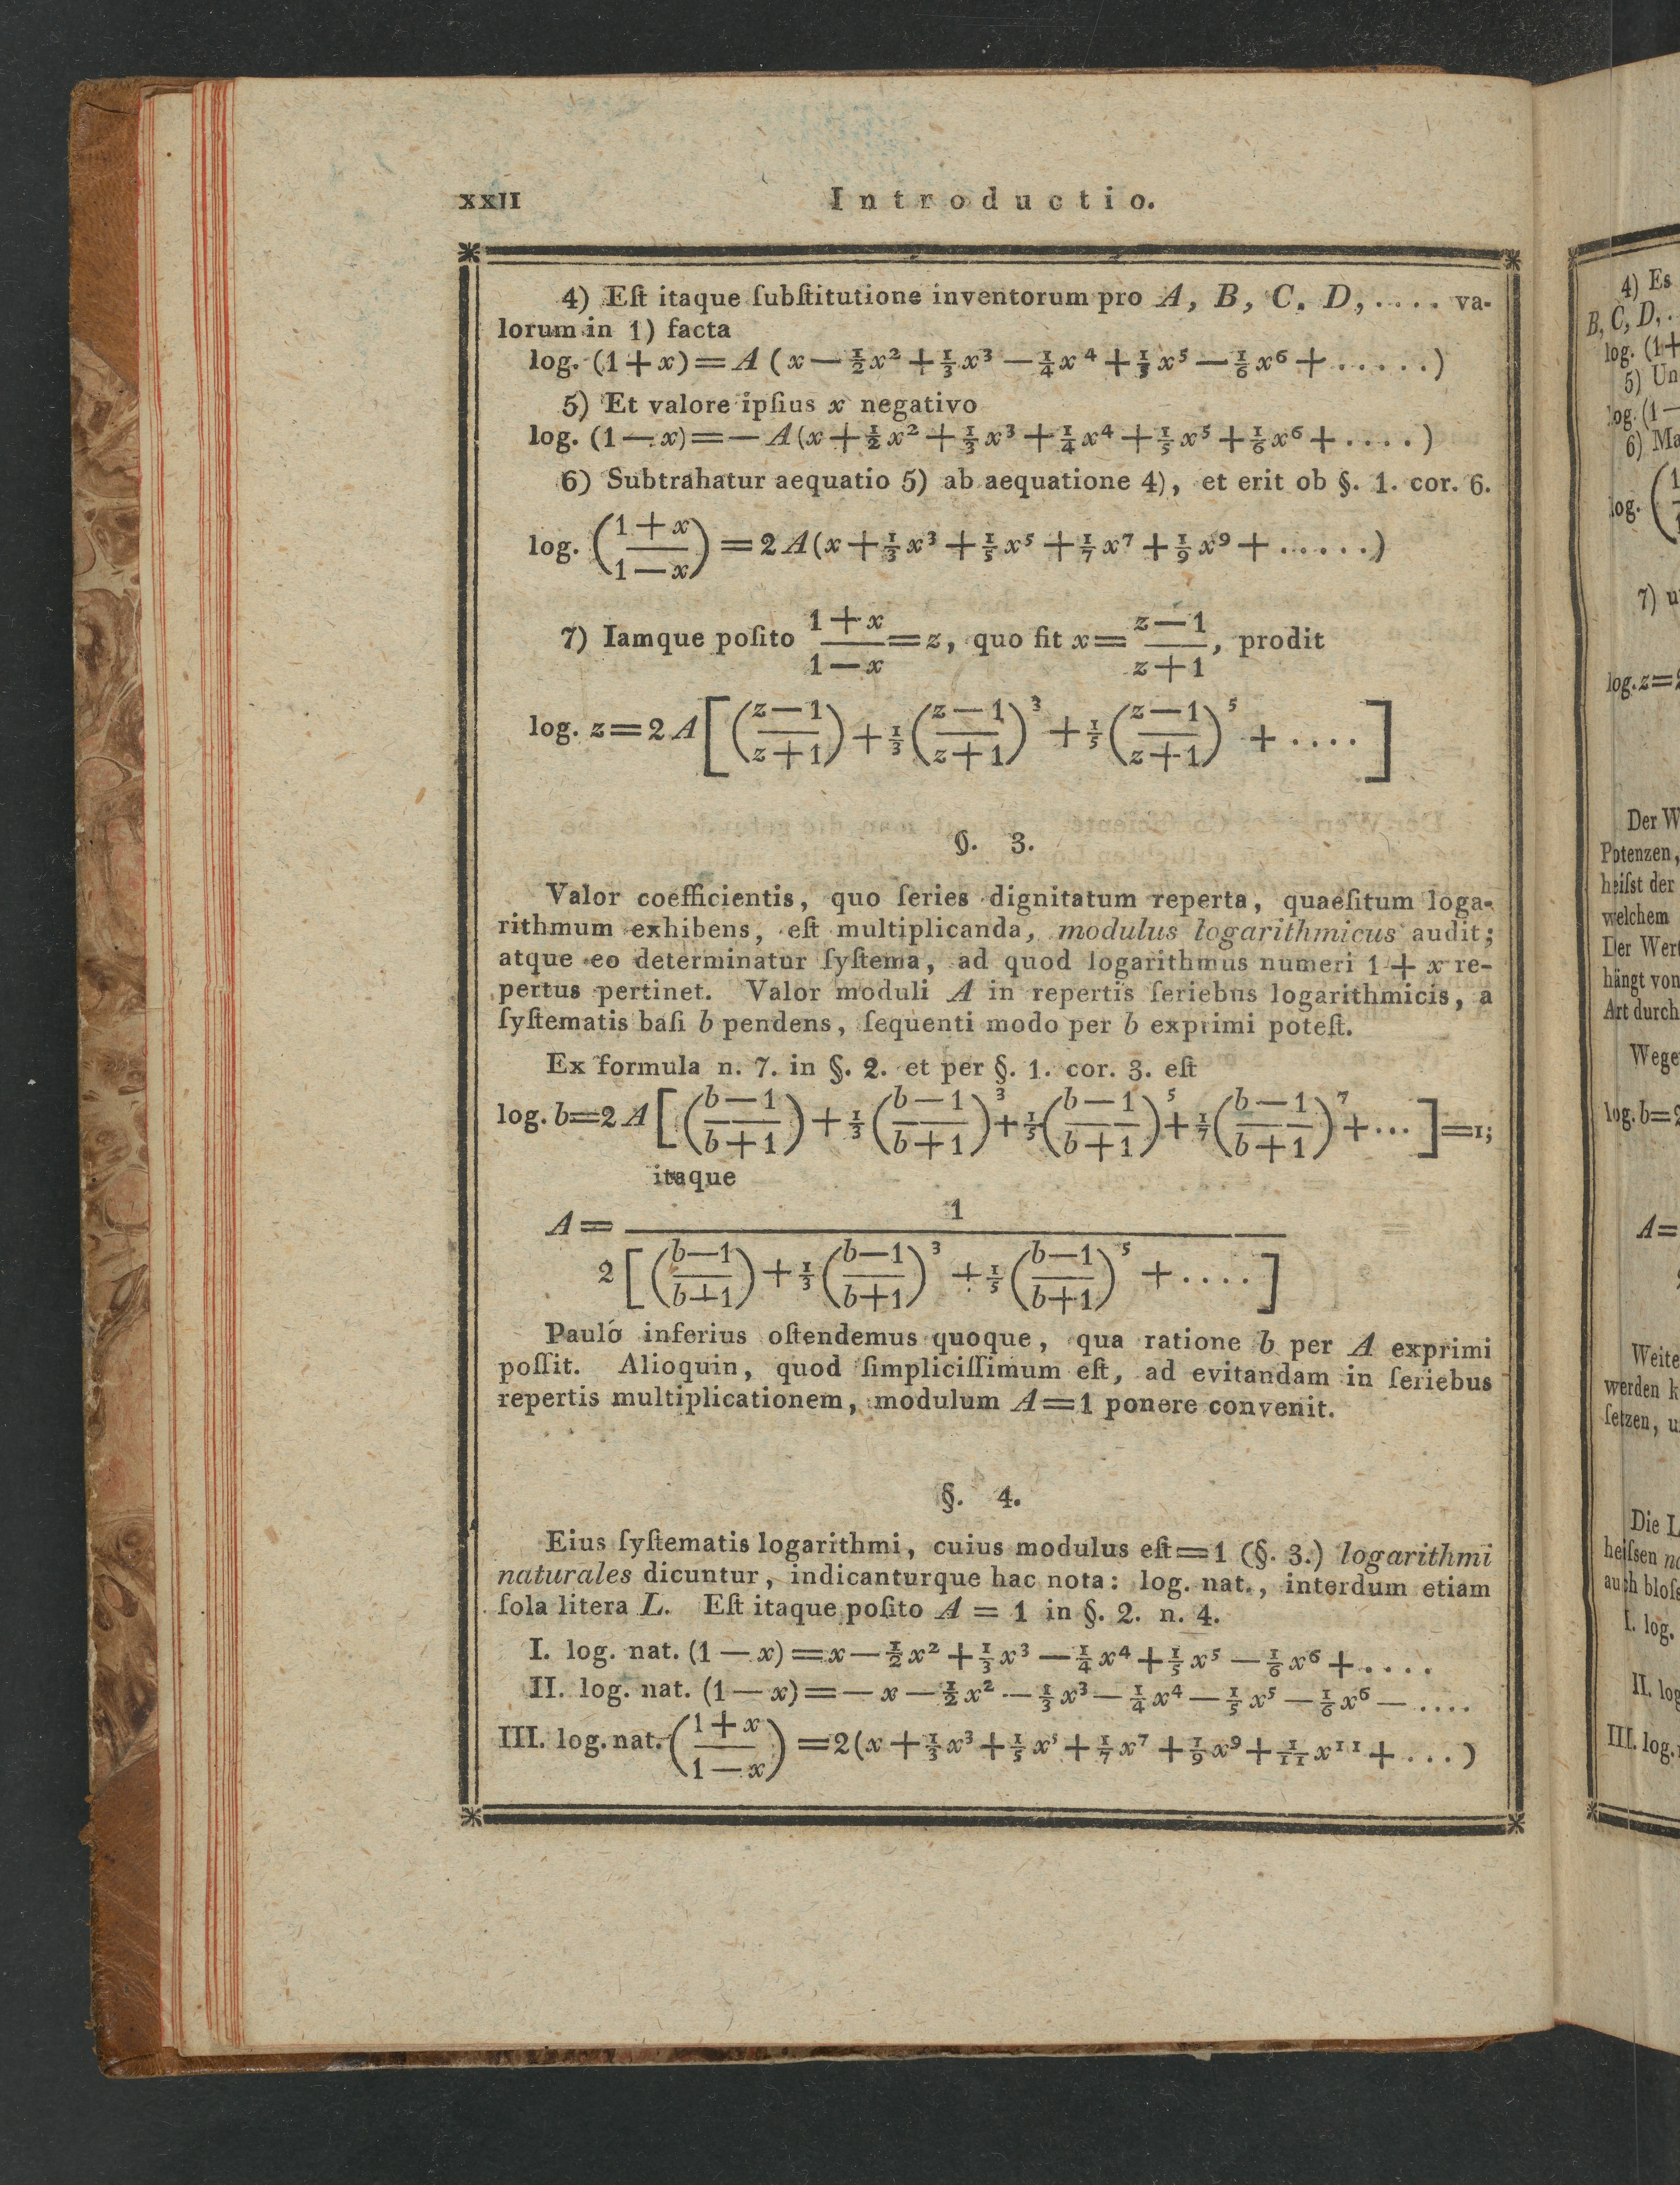 XXII Introductio.
4) Eſt itaque ſubſtitutione inventorum pro A, B, C, D, .... va-
lorum in 1) facta
log. (1 + x) = A ( x — ½ x² + ⅓ x³ — ¼ x⁴ + ⅕ x⁵ — ⅙ x⁶ + ......)
5) Et valore ipſius x negativo
log. (1 — x) = — A (x + ½ x² + ⅓ x³ + ¼ x⁴ + ⅕ x⁵ + ⅙ x⁶ + .... )
6) Subtrahatur aequatio 5) ab aequatione 4), et erit ob §. 1. cor. 6.
log. ((1 + x)/(1 — x)) = 2 A (x + ⅓ x³ + ⅕ x⁵ + 1/7 x⁷ + 1/9 x⁹ + ......)
7) Iamque poſito (1 + x)/(1 — x) = z, quo fit x = (z — 1)/(z + 1), prodit
log. z = 2 A [ ((z — 1)/(z + 1)) + ⅓ ((z — 1)/(z + 1))³ + ⅕ ((z — 1)/(z + 1))⁵ + .... ]
§. 3.
Valor coefficientis, quo ſeries dignitatum reperta, quaeſitum loga-
rithmum exhibens, eſt multiplicanda, modulus logarithmicus audit;
atque eo determinatur ſyſtema, ad quod logarithmus numeri 1 + x re-
pertus pertinet. Valor moduli A in repertis ſeriebus logarithmicis, a
ſyſtematis baſi b pendens, ſequenti modo per b exprimi poteſt.
Ex formula n. 7. in §. 2. et per §. 1. cor. 3. eſt
log. b = 2 A [ ((b — 1)/(b + 1)) + ⅓ ((b — 1)/(b + 1))³ + ⅕ ((b — 1)/(b + 1))⁵ + 1/7 ((b — 1)/(b + 1))⁷ + ... ] = 1;
itaque
A = 1
2 [ ((b—1)/(b+1)) + ⅓ ((b—1)/(b+1))³ + ⅕ ((b—1)/(b+1))⁵ + .... ]
Pauló inferius oſtendemus quoque, qua ratione b per A exprimi
poſſit. Alioquin, quod ſimpliciſſimum eſt, ad evitandam in ſeriebus
repertis multiplicationem, modulum A = 1 ponere convenit.
§. 4.
Eius ſyſtematis logarithmi, cuius modulus eſt = 1 (§. 3.) logarithmi
naturales dicuntur, indicanturque hac nota: log. nat., interdum etiam
ſola litera L. Eſt itaque poſito A = 1 in §. 2. n. 4.
I. log. nat. (1 — x) = x — ½ x² + ⅓ x³ — ¼ x⁴ + ⅕ x⁵ — ⅙ x⁶ + ....
II. log. nat. (1 — x) = — x — ½ x² — ⅓ x³ — ¼ x⁴ — ⅕ x⁵ — ⅙ x⁶ — ....
III. log. nat. ((1 + x)/(1 — x)) = 2 (x + ⅓ x³ + ⅕ x⁵ + 1/7 x⁷ + 1/9 x⁹ + 1/11 x¹¹ + ... )
4) Es
B, C, D, .
log. (1+
5) Un
log. (1—
6) Ma
log. (1
7) u
log. z = 2
Der W
Potenzen,
heiſst der
welchem
Der Wert
hängt von
Art durch
Wege
log. b = 2
A =
Weite
werden k
ſetzen, u
Die L
heiſsen na
auch bloſs
I. log.
II. log
III. log.